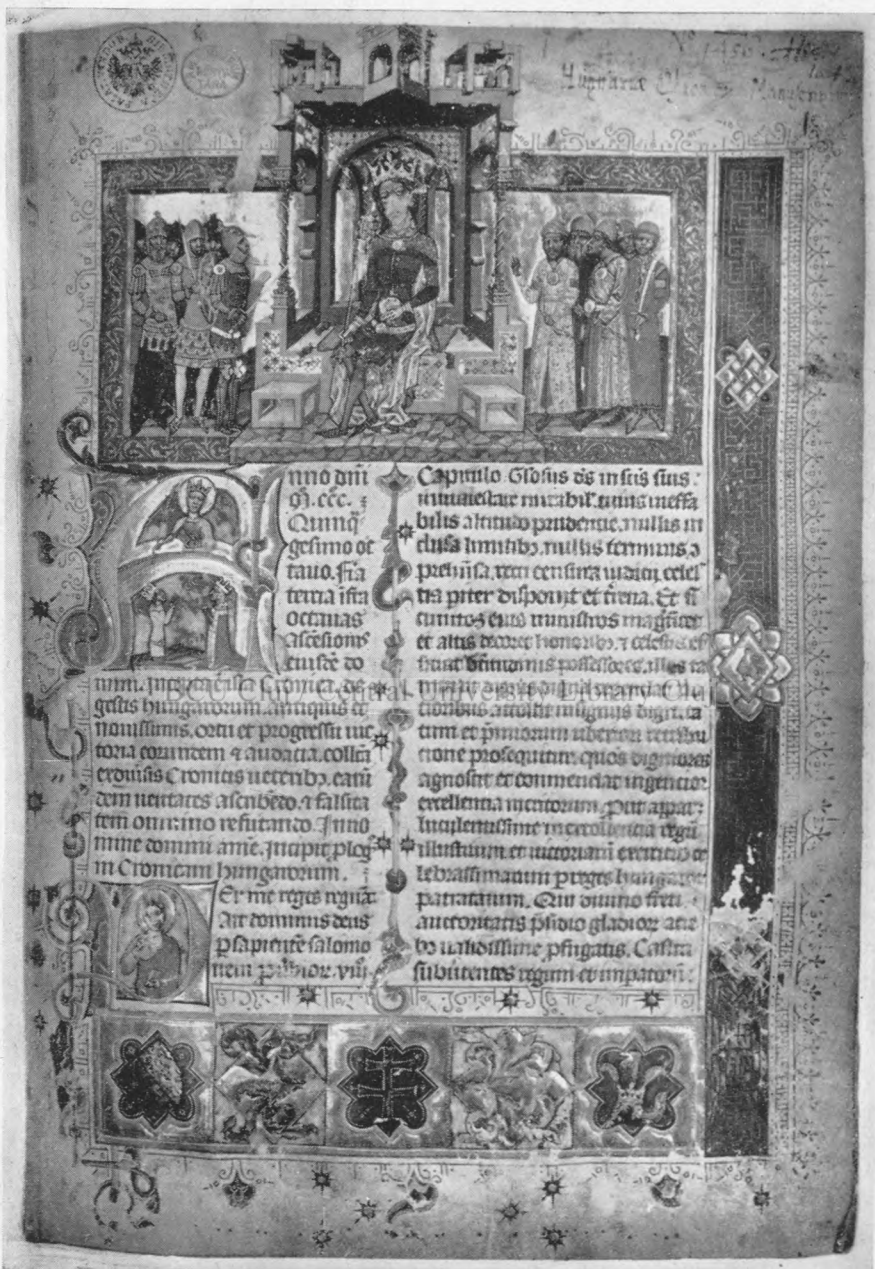 nno dñi
M. ccc.
Quinq̃
gesimo oc
tauo. fīa
tertia ifra
octauas
ascēsionis
eiusdē do
mini. Incepta ē ista Cronica de
gestis hungarorum antiquis et
nouissimis. ortu et progressu uic
toria eorundem ⁊ audacia. collecta
ex diuſis Cronicis ueteribꝫ. earū
dem ueritates ascribēdo. ⁊ falsita
tem omnino refutando. In no
mine domini amē. Incipit ꝓlog
in Cronicam hungarorum.
Per me reges regnāt
Ait dominus deus
ꝑ sapientē salomo
nem ꝓuͥbior. viij.
Capitulo. Gl̄osus d̄s in scīs suis.
in maiestate mirabil'. cuius ineffa
bilis altitudo prudentie. nullis in
clusa limitibꝫ. nullis terminis ꝯ
prehēsa. recti censura iudicij celes
tia p̄iter disponit et t̄rena. Et si
cunctos eius ministros magn̄ficet
et altis decoret honoribꝫ. ⁊ celestis ef
ficiat b̄titudinis possessores. illos ta
tioribus attollit insignijs dignita
tum et p̄miorum uberiori retribu
tione prosequitur. quos digniores
agnoscit et commendat ingentior
excellentia meritorum. ꝓut appar
luculentissime in excellentia regū
illustrium et uictoriarū exercicio ce
lebrassimarum ꝑ reges hungarie
patratarum. Qui diuino freti
auctoritatis p̄sidio gladior̄ acie
validissime ꝓfugatis. Castra
subeuntes regum et imꝑatorū